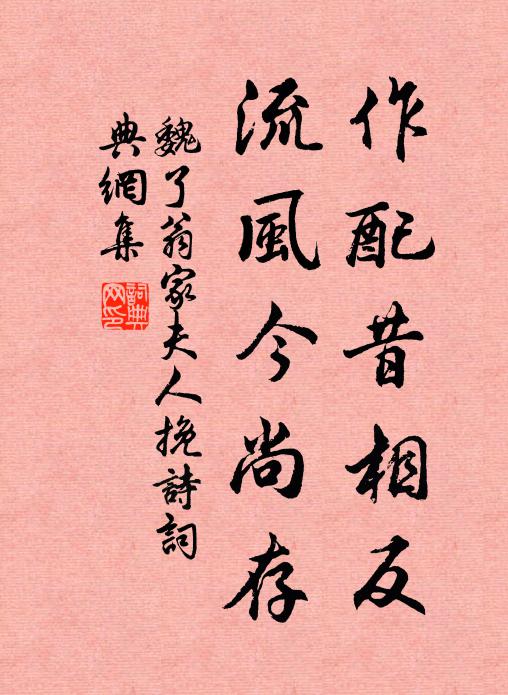 作配昔相反
流風今尚存
魏了翁家夫人挽詩詞
典網集
詞典
网印